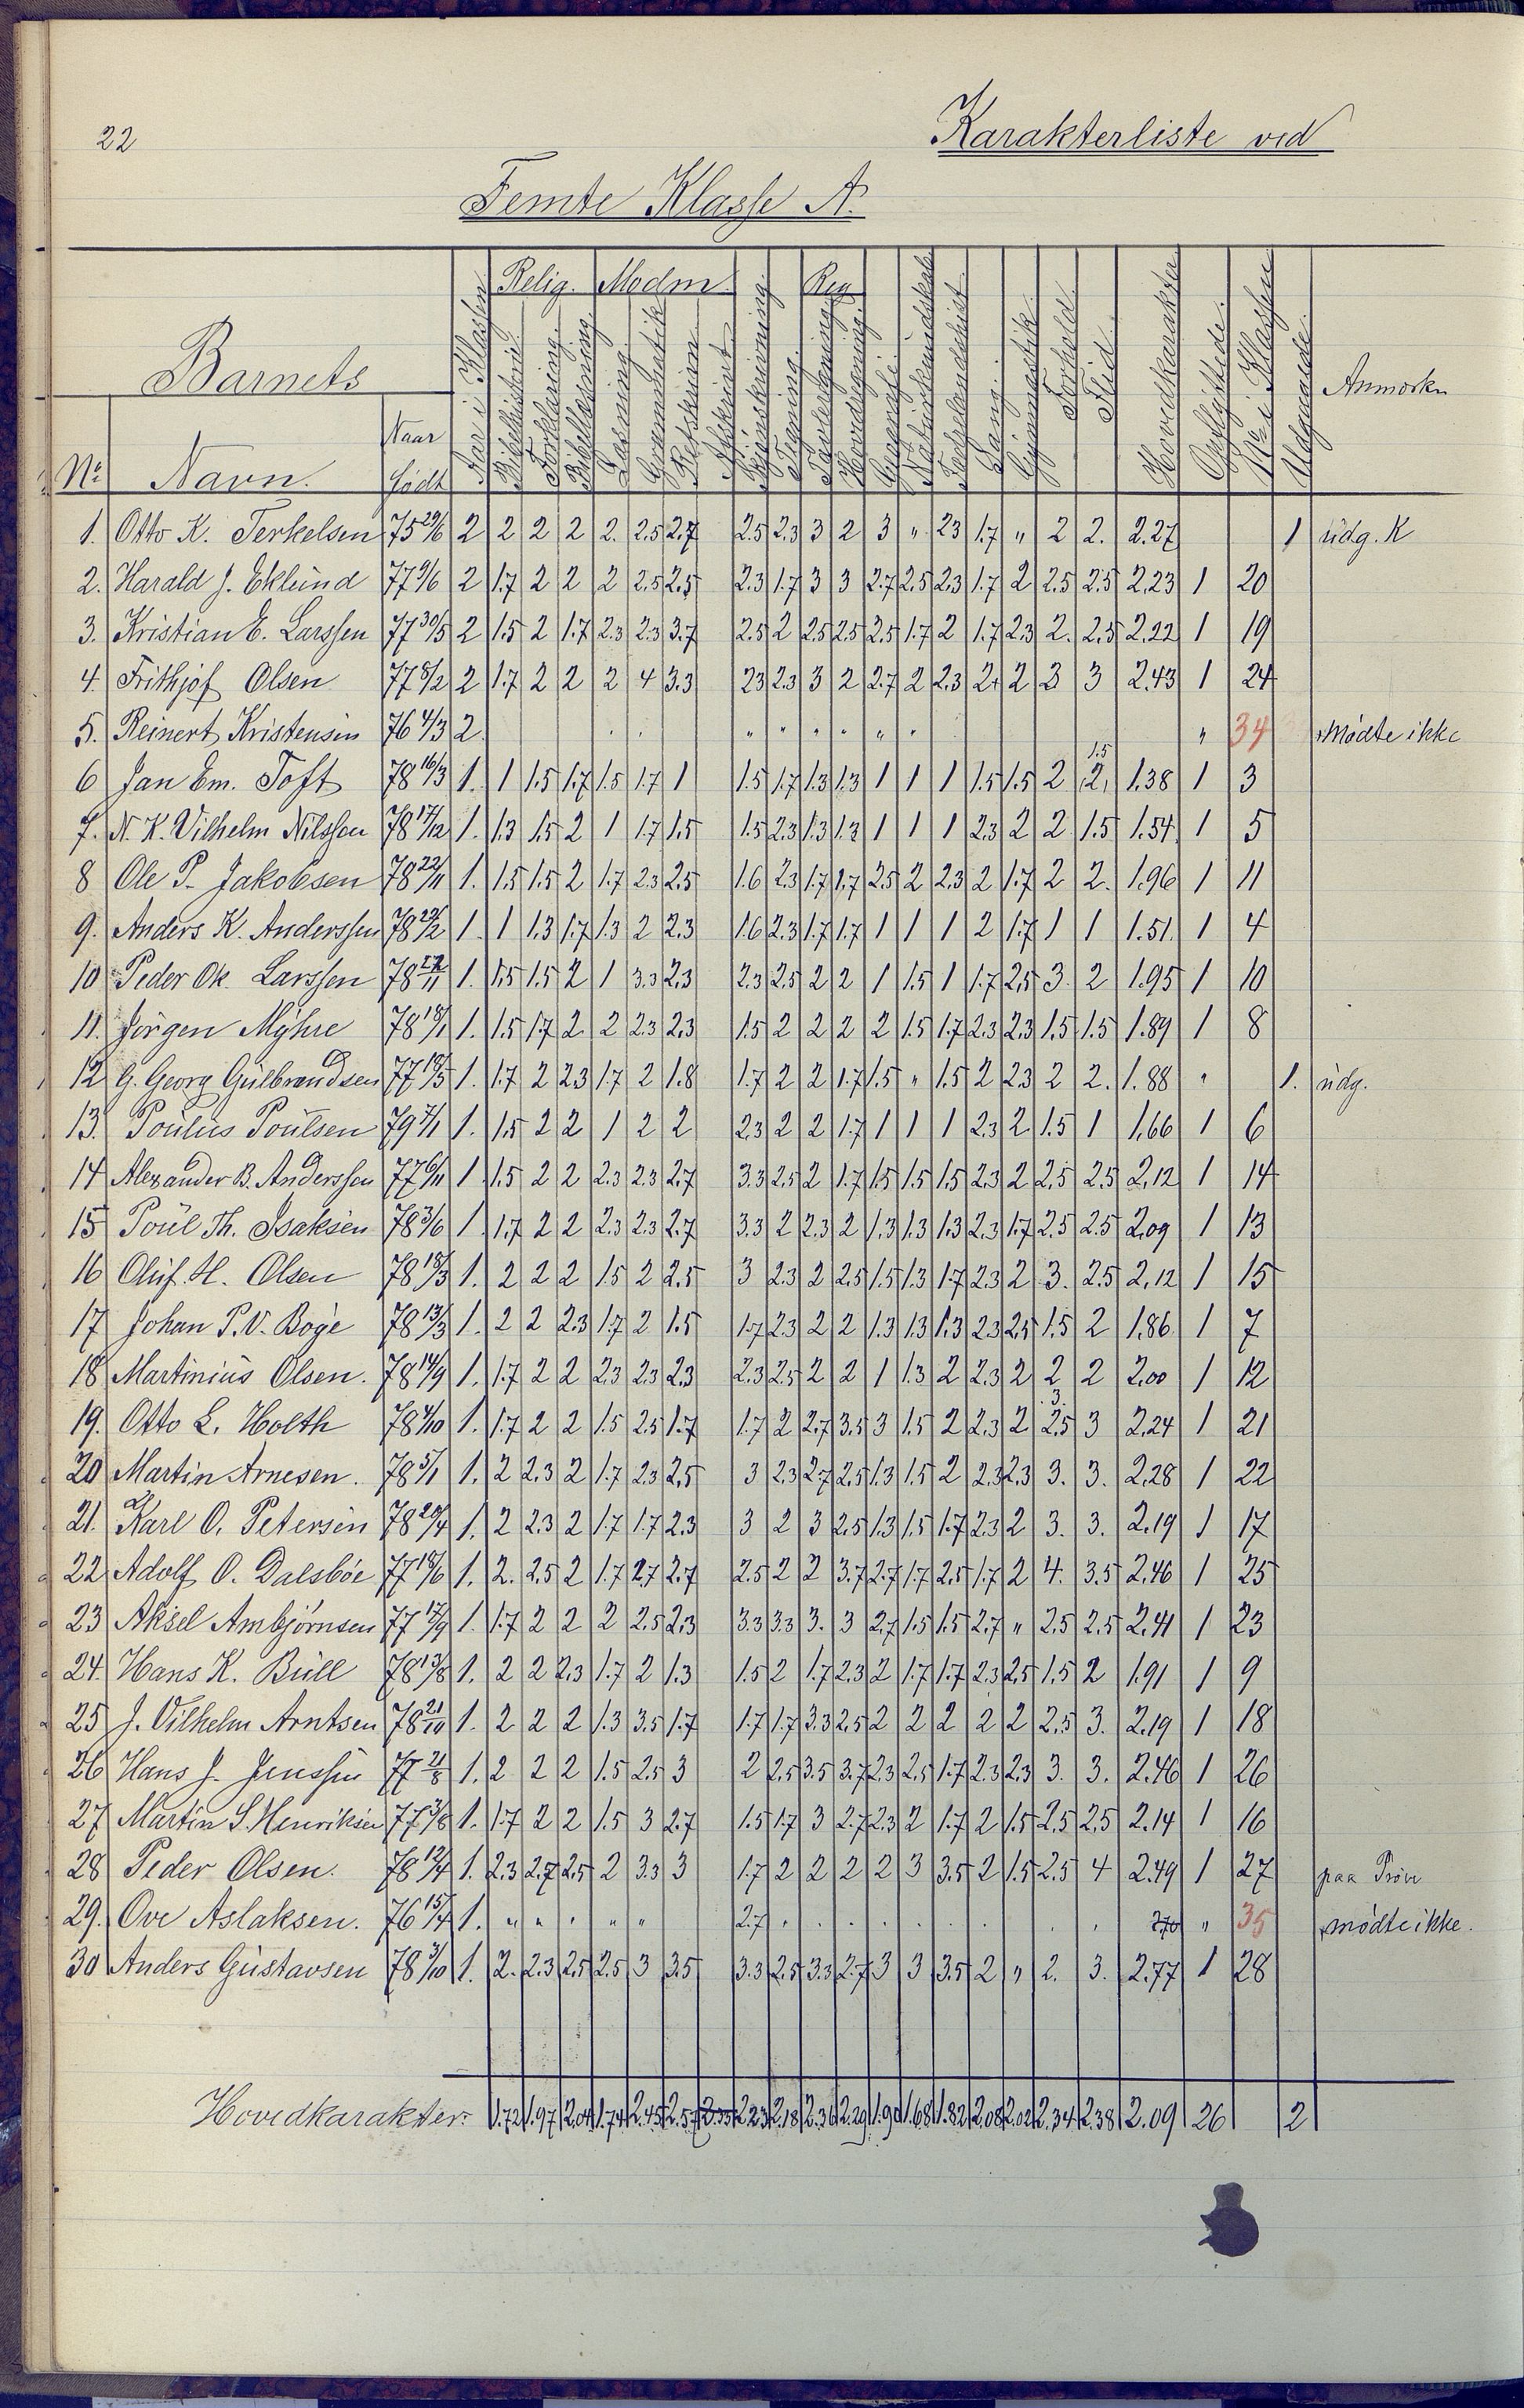 22
Karakterliste ved
Femte Klasse A.
Relig. Modm. Reg
Barnets Aar i Klassen Bibelhistorie Forklaring. Bibellæsning Læsning Grammatik Retskrivn. Afskrivt Skjönskrivning Tegning. Tavleregning Hovedregning. Geografi. Naturkundskab Fædrelandshist. Sang. Gymnastik. Forhold. Flid. Hovedkarakter Opflyttede. No i Klassen Udgaaede. Anmærkn
No Navn. Naar födt
1. Otto K. Terkelsen 75 29/6 2 2 2 2 2. 2.5 2.7 2.5 2.3 3 2 3 " 2.3 1.7 " 2 2. 2.27 1 udg. K
2. Harald J. Eklund 77 9/6 2 1.7 2 2 2 2.5 2.5 2.3 1.7 3 3 2.7 2.5 2.3 1.7 2 2.5 2.5 2.23 1 20
3. Kristian E. Larssen 77 30/5 2 1.5 2 1.7 2.3 2.3 3.7 2.5 2 2.5 2.5 2.5 1.7 2 1.7 2.3 2. 2.5 2.22 1 19
4. Frithjof Olsen 77 8/2 2 1.7 2 2 2 4 3.3 2.3 2.3 3 2 2.7 2 2.3 2+ 2 3 3 2.43 1 24
5. Reinert Kristensen 76 4/3 2. " " " " " " " 34 mödte ikke
1.5
6 Jan Em. Toft 78 16/3 1. 1 1.5 1.7 1.5 1.7 1 1.5 1.7 1.3 1.3 1 1 1 1.5 1.5 2 2, 1.38 1 3
7. N. K. Vilhelm Nilssen 78 17/12 1. 1.3 1.5 2 1 1.7 1.5 1.5 2.3 1.3 1.3 1 1 1 2.3 2 2 1.5 1.54 1 5
8 Ole P. Jakobsen 78 22/11 1. 1.5 1.5 2 1.7 2.3 2.5 1.6 2.3 1.7 1.7 2.5 2 2.3 2 1.7 2 2. 1.96 1 11
9. Anders K. Anderssen 78 22/2 1. 1 1.3 1.7 1.3 2 2.3 1.6 2.3 1.7 1.7 1 1 1 2 1.7 1 1 1.51. 1 4
10 Peder Ok. Larssen 78 /11 1. 1.5 1.5 2 1 3.3 2.3 2.3 2.5 2 2 1 1.5 1 1.7 2.5 3. 2 1.95 1 10
11. Jörgen Myhre 78 18/1 1. 1.5 1.7 2. 2 2.3 2.3 1.5 2 2 2 2 1.5 1.7 2.3 2.3 1.5 1.5 1.89 1 8
12 G. Georg Gulbrandsen 77 18/5 1. 1.7 2 2.3 1.7 2 1.8 1.7 2 2 1.7 1.5 " 1.5 2 2.3 2 2. 1.88 " 1. udg.
13. Poulus Poulsen 79 7/1 1. 1.5 2 2 1 2 2 2.3 2 2 1.7 1 1 1 2.3 2 1.5 1 1.66 1 6
14 Alexander B. Anderssen 77 6/11 1 1.5 2 2 2.3 2.3 2.7 3.3 2.5 2 1.7 1.5 1.5 1.5 2.3 2 2.5 2.5 2.12 1 14
15 Poul Th. Isaksen 78 3/6 1. 1.7 2 2 2.3 2.3 2.7 3.3 2 2.3 2 1.3 1.3 1.3 2.3 1.7 2.5 2.5 2.09 1 13
16 Oluf. H. Olsen 78 18/3 1. 2 2 2 1.5 2 2.5 3 2.3 2 2.5 1.5 1.3 1.7 2.3 2 3. 2.5 2.12 1 15
17 Johan P.V. Boge 78 13/3 1. 2 2 2.3 1.7 2 1.5 1.7 2.3 2 2 1.3 1.3 1.3 2.3 2.5 1.5 2 1.86 1 7
18 Martinius Olsen. 78 14/9 1. 1.7 2 2 2.3 2.3 2.3 2.3 2.5 2 2 1 1.3 2 2.3 2 2 2 2.00 1 12
3.
19. Otto L. Holth 78 4/10 1. 1.7 2 2 1.5 2.5 1.7 1.7 2 2.7 3.5 3 1.5 2 2.3 2 2.5 3 2.24 1 21
20 Martin Arnesen. 78 5/1 1. 2 2.3 2 1.7 2.3 2.5 3 2.3 2.7 2.5 1.3 1.5 2 2.3 2.3 3. 3. 2.28 1 22
21. Karl O. Petersen 78 20/4 1. 2 2.3 2 1.7 1.7 2.3 3 2 3 2.5 1.3 1.5 1.7 2.3 2 3. 3. 2.19 1 17
22 Adolf O. Dalsböe 77 18/6 1. 2. 2.5 2 1.7 2.7 2.7 2.5 2 2 3.7 2.7 1.7 2.5 1.7 2 4. 3.5 2.46 1 25
23 Aksel Ambjörnsen 77 17/9 1. 1.7 2 2 2 2.5 2.3 3.3 3.3 3. 3 2.7 1.5 1.5 2.7 " 2.5 2.5 2.41 1 23
24. Hans K. Bull 78 13/8 1. 2 2 2.3 1.7 2 1.3 1.5 2 1.7 2.3 2 1.7 1.7 2.3 2.5 1.5 2 1.91 1 9
25 J. Vilhelm Arntsen 78 21/10 1. 2 2 2 1.3 3.5 1.7 1.7 1.7 3.3 2.5 2 2 2 2 2 2.5 3. 2.19 1 18
26 Hans J. Jenssen 77 21/8 1. 2 2 2 1.5 2.5 3 2 2.5 3.5 3.7 2.3 2.5 1.7 2.3 2.3 3. 3. 2.46 1 26
27 Martin S. Henriksen 77 3/8 1. 1.7 2 2 1.5 3 2.7 1.5 1.7 3 2.7 2.3 2 1.7 2 1.5 2.5 2.5 2.14 1 16
28 Peder Olsen. 78 12/4 1. 2.3 2.7 2.5 2 3.3 3 1.7 2 2 2 2 3 3.5 2 1.5 2.5 4 2.49 1 27 paa Pröve
29. Ove Aslaksen. 76 15/4 1. " " " " " 2.7 " 2.70 " 35 mödte ikke.
30 Anders Gustavsen 78 3/10 1. 2. 2.3 2.5 2.5 3 3.5 3.3 2.5 3.3 2.7 3 3 3.5 2 " 2. 3. 2.77 1 28
Hovedkarakter: 1.72 1.97 2.04 1.74 2.45 2.57 2.23 2.18 2.36 2.29 1.90 1.68 1.82 2.08 2.02 2.34 2.38 2.09 26 2